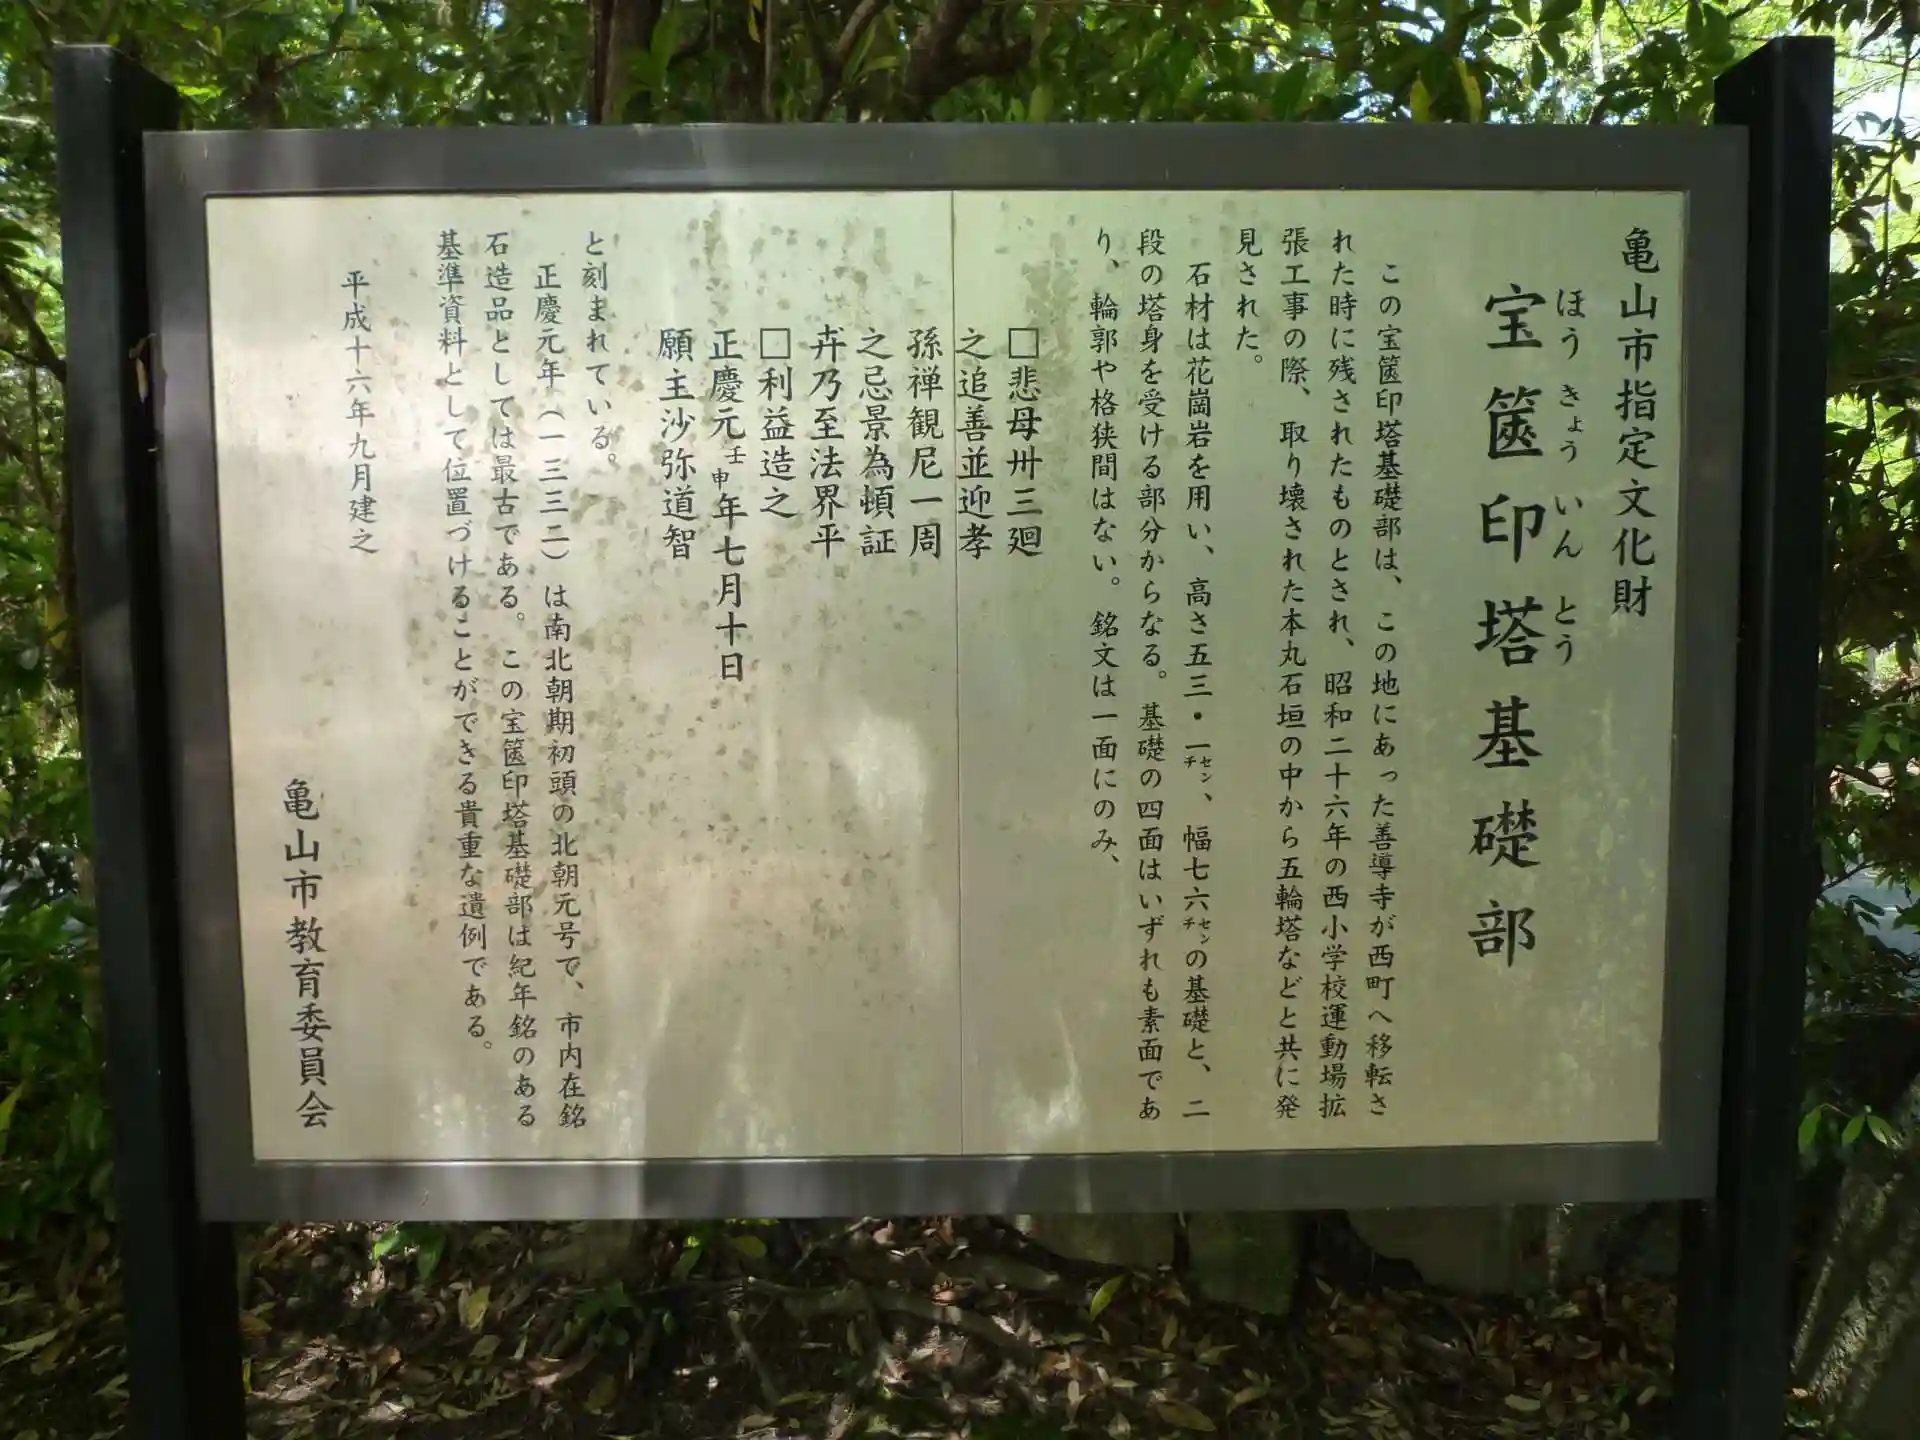 亀山市指定文化財
ほうきょういんとう
宝篋印塔基礎部
この宝篋印塔基礎部は、この地にあった善導寺が西町へ移転さ
れた時に残されたものとされ、昭和二十六年の西小学校運動場拡
張工事の際、取り壊された本丸石垣の中から五輪塔などと共に発
見された。
石材は花崗岩を用い、高さ五三・一センチ、幅七六センチの基礎と、二
段の塔身を受ける部分からなる。基礎の四面はいずれも素面であ
り、輪郭や格狭間はない。銘文は一面にのみ、
□悲母卅三廻
之追善並迎孝
孫禅観尼一周
之忌景為頓証
卉乃至法界平
□利益造之
正慶元壬申年七月十日
願主沙弥道智
と刻まれている。
正慶元年（一三三二）は南北朝期初頭の北朝元号で、市内在銘
石造品としては最古である。この宝篋印塔基礎部は紀年銘のある
基準資料として位置づけることができる貴重な遺例である。
平成十六年九月建之
亀山市教育委員会